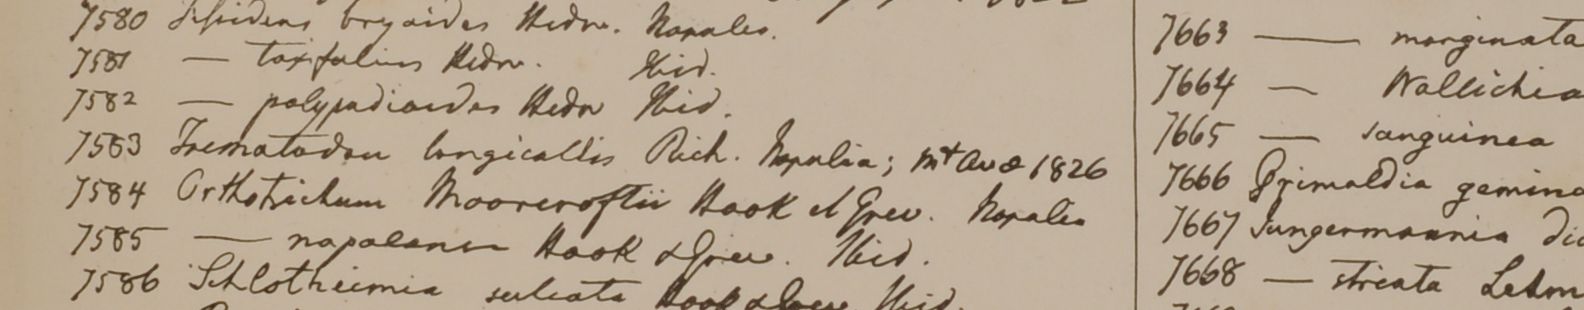 7580 Fissidens bryoides Hedw. Napalea.
7581 — taxifolius Hedw. Ibid.
7582 — polypodioides Hedw Ibid.
7583 Trematodon longicollis Rich. Napalia; Mt Ava 1826
7584 Orthotrichum Moorcroftii Hook et Grev. Napalea
7585 — napalense Hook & Grev. Ibid.
7586 Schlotheimia sulcata Hook & Grev Ibid.
7663 — marginata
7664 — Wallichia
7665 — sanguinea
7666 Grimaldia gemina
7667 Jungermannia dic
7668 — stricta Lehm